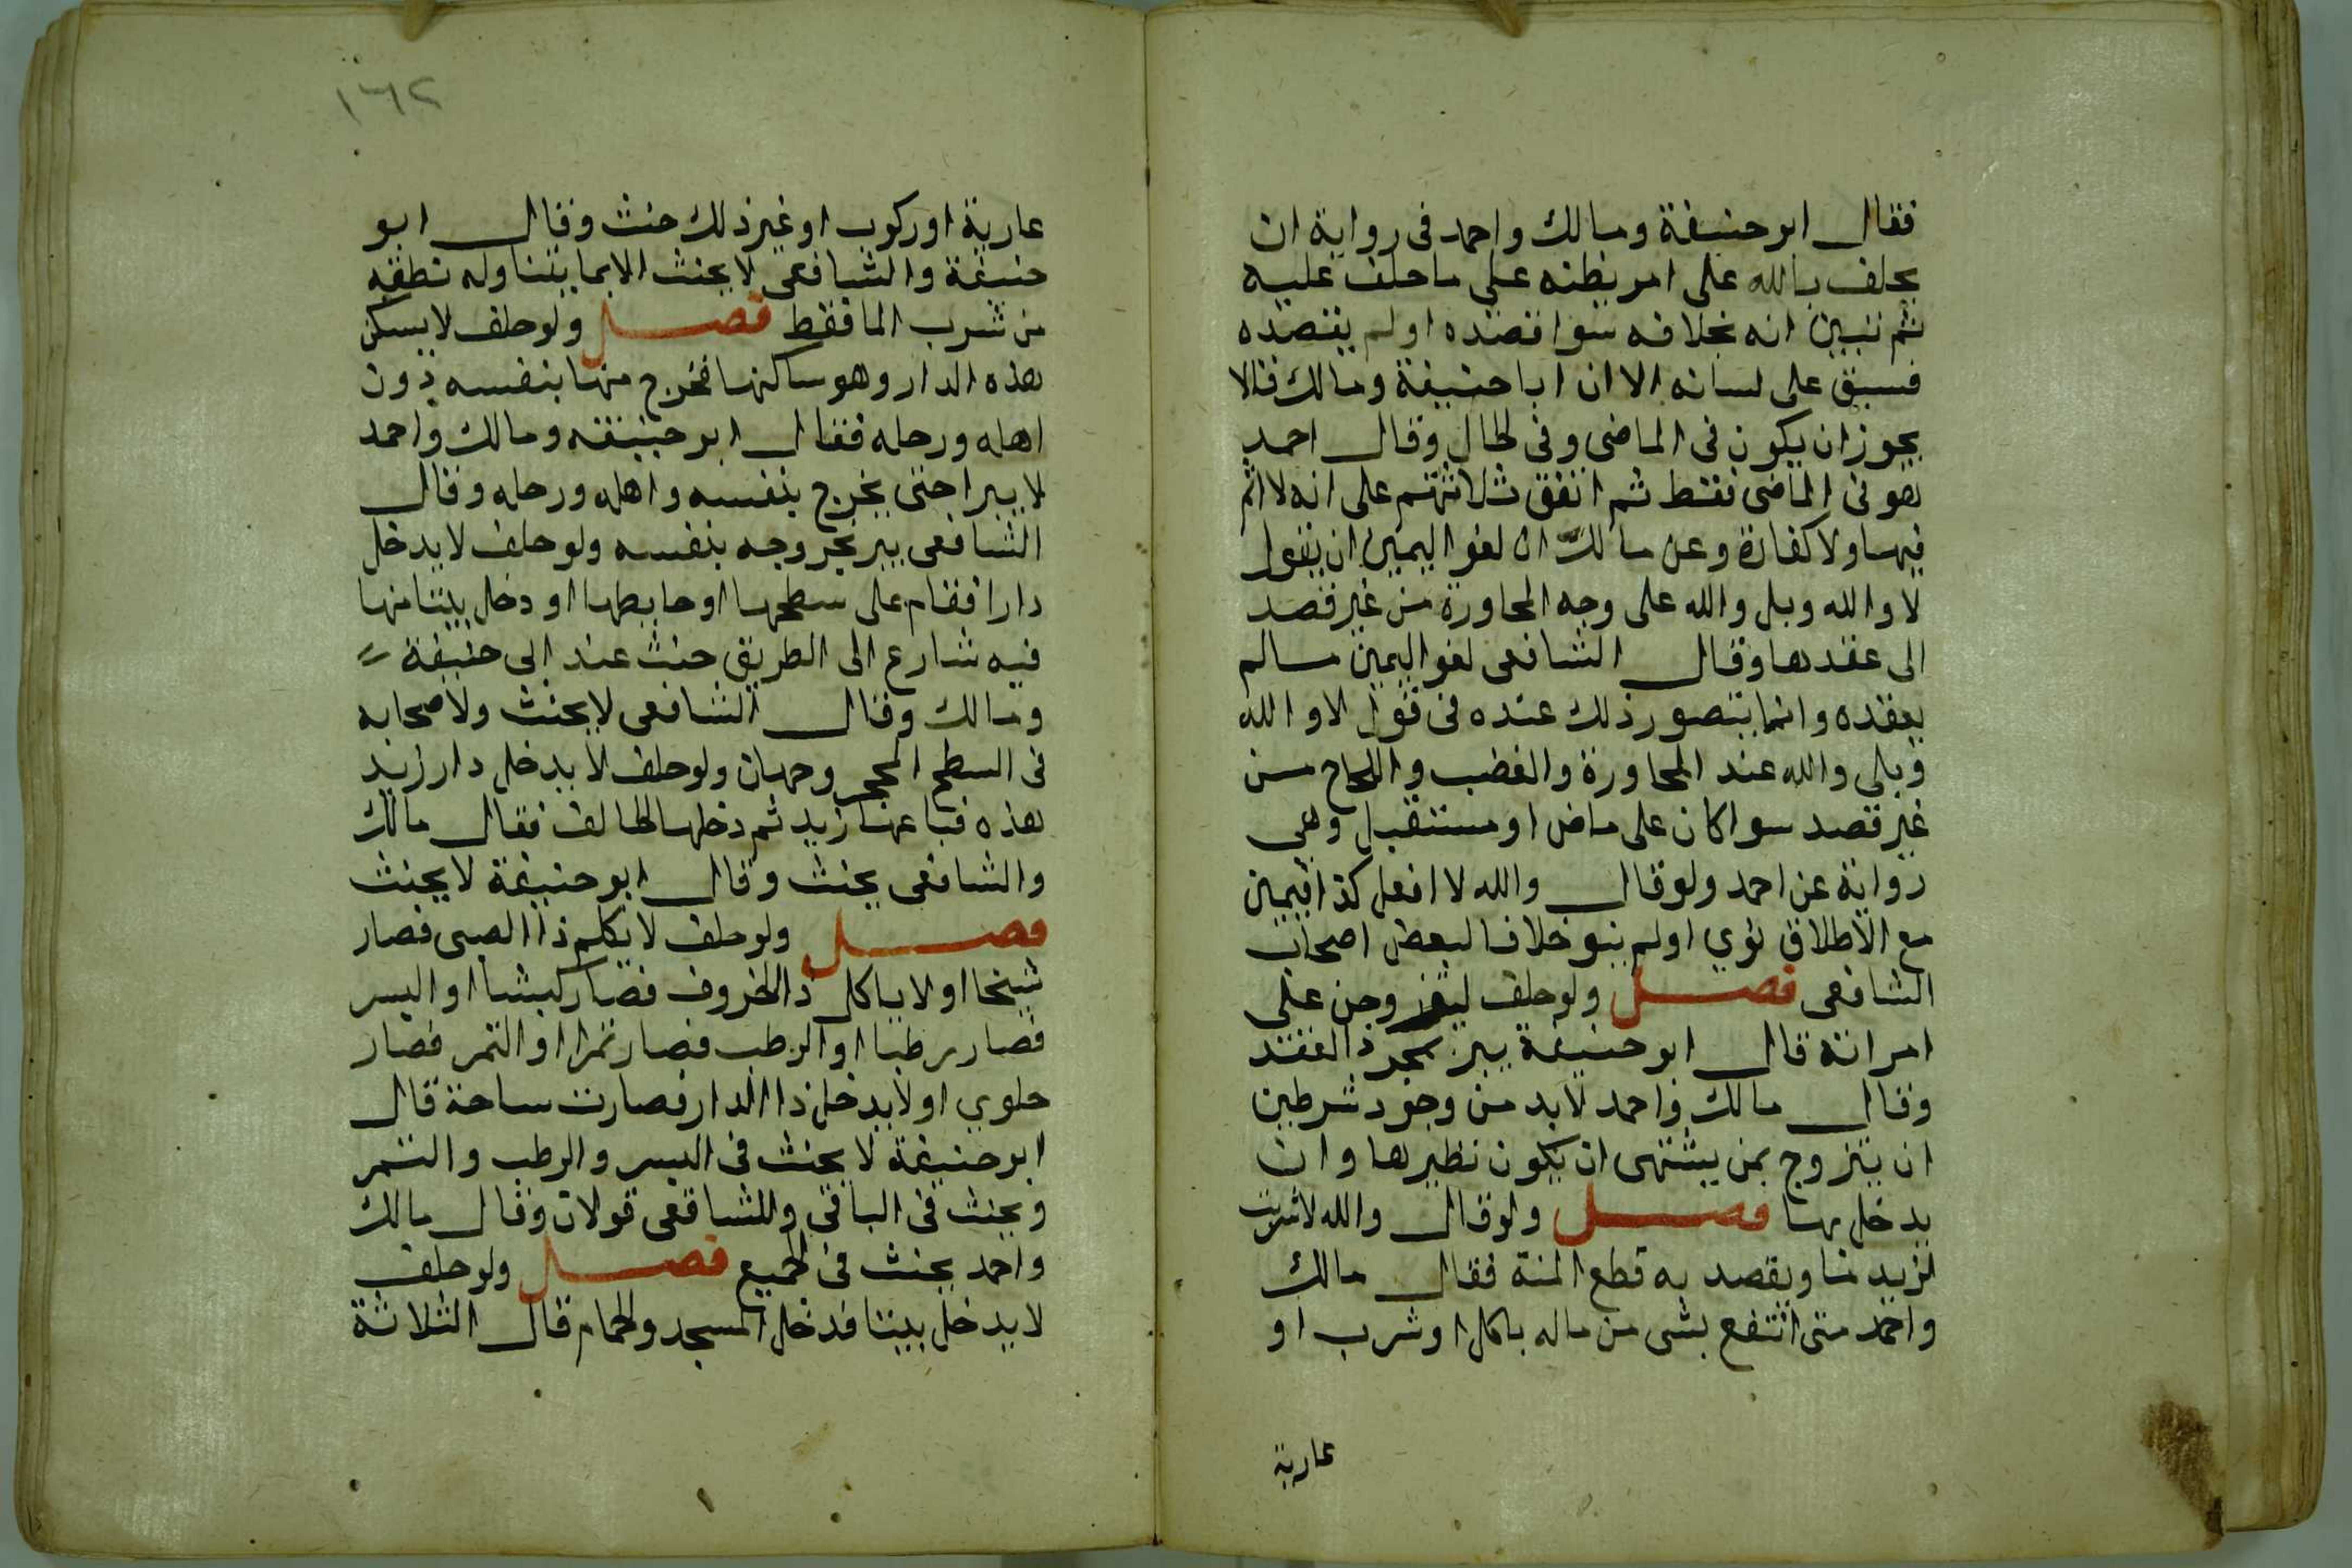 فقال ابو حنيفة ومالك واحمد فى رواية ان
يحلف بالله على امر يظنه على ما حلف عليه
ثم تبين انه بخلافه سوا قصده او لم يقصده
فسبق على لسانه الا ان ابا حنيفة ومالك قالا
يجوز ان يكون فى الماضى وفى الحال وقال احمد
هو فى الماضى فقط ثم اتفق ثلاثتهم على انه لا اثم
فيها ولا كفارة وعن مالك ان لغو اليمين ان يقول
لا والله وبل والله على وجه المحاورة من غير قصد
الى عقدها وقال الشافعى لغو اليمين مالم
يعقده وانما يتصور ذلك عنده فى قول لا والله
وبلى والله عند المحاورة والغضب واللجاج من
غير قصد سوا كان على ماض او مستقبل وهى
رواية عن احمد ولو قال والله لا افعل كذا فيمين
مع الاطلاق نوى او لم ينو خلافا لبعض اصحاب
الشافعى فصل ولو حلف ليتزوجن على
امراته قال ابو حنيفة يبر بمجرد العقد
وقال مالك واحمد لابد من وجود شرطين
ان يتزوج بمن يشتهى ان يكون نظيرها وان
يدخل بها فصل ولو قال والله لاشربت
لزيد ما ويقصد به قطع المنة فقال مالك
واحمد متى انتفع بشى من ماله باكل او شرب او
عارية
١٦٢
عارية او ركوب او غير ذلك حنث وقال ابو
حنيفة والشافعى لا يحنث الا بما يتناوله نطقه
من شرب الما فقط فصل ولو حلف لا يسكن
هذه الدار وهو ساكنها فخرج منها بنفسه دون
اهله ورحله فقال ابو حنيفه ومالك واحمد
لا يبرا حتى يخرج بنفسه واهله ورحله وقال
الشافعى يبر بخروجه بنفسه ولو حلف لا يدخل
دارا فقام على سطحها او حايطها او دخل بيتا منها
فيه شارع الى الطريق حنث عند ابى حنيفة
ومالك وقال الشافعى لا يحنث ولاصحابه
فى السطح المحجر وجهان ولو حلف لا يدخل دار زيد
هذه فباعها زيد ثم دخلها الحالف فقال مالك
والشافعى يحنث وقال ابو حنيفة لا يحنث
فصل ولو حلف لا يكلم ذا الصبى فصار
شيخا او لا ياكل ذا الخروف فصار كبشا او البسر
فصار رطبا او الرطب فصار تمرا او التمر فصار
حلوى او لا يدخل ذا الدار فصارت ساحة قال
ابو حنيفة لا يحنث فى البسر والرطب والتمر
ويحنث فى الباقى وللشافعى قولان وقال مالك
واحمد يحنث فى الجميع فصل ولو حلف
لا يدخل بيتا فدخل المسجد والحمام قال الثلاثة